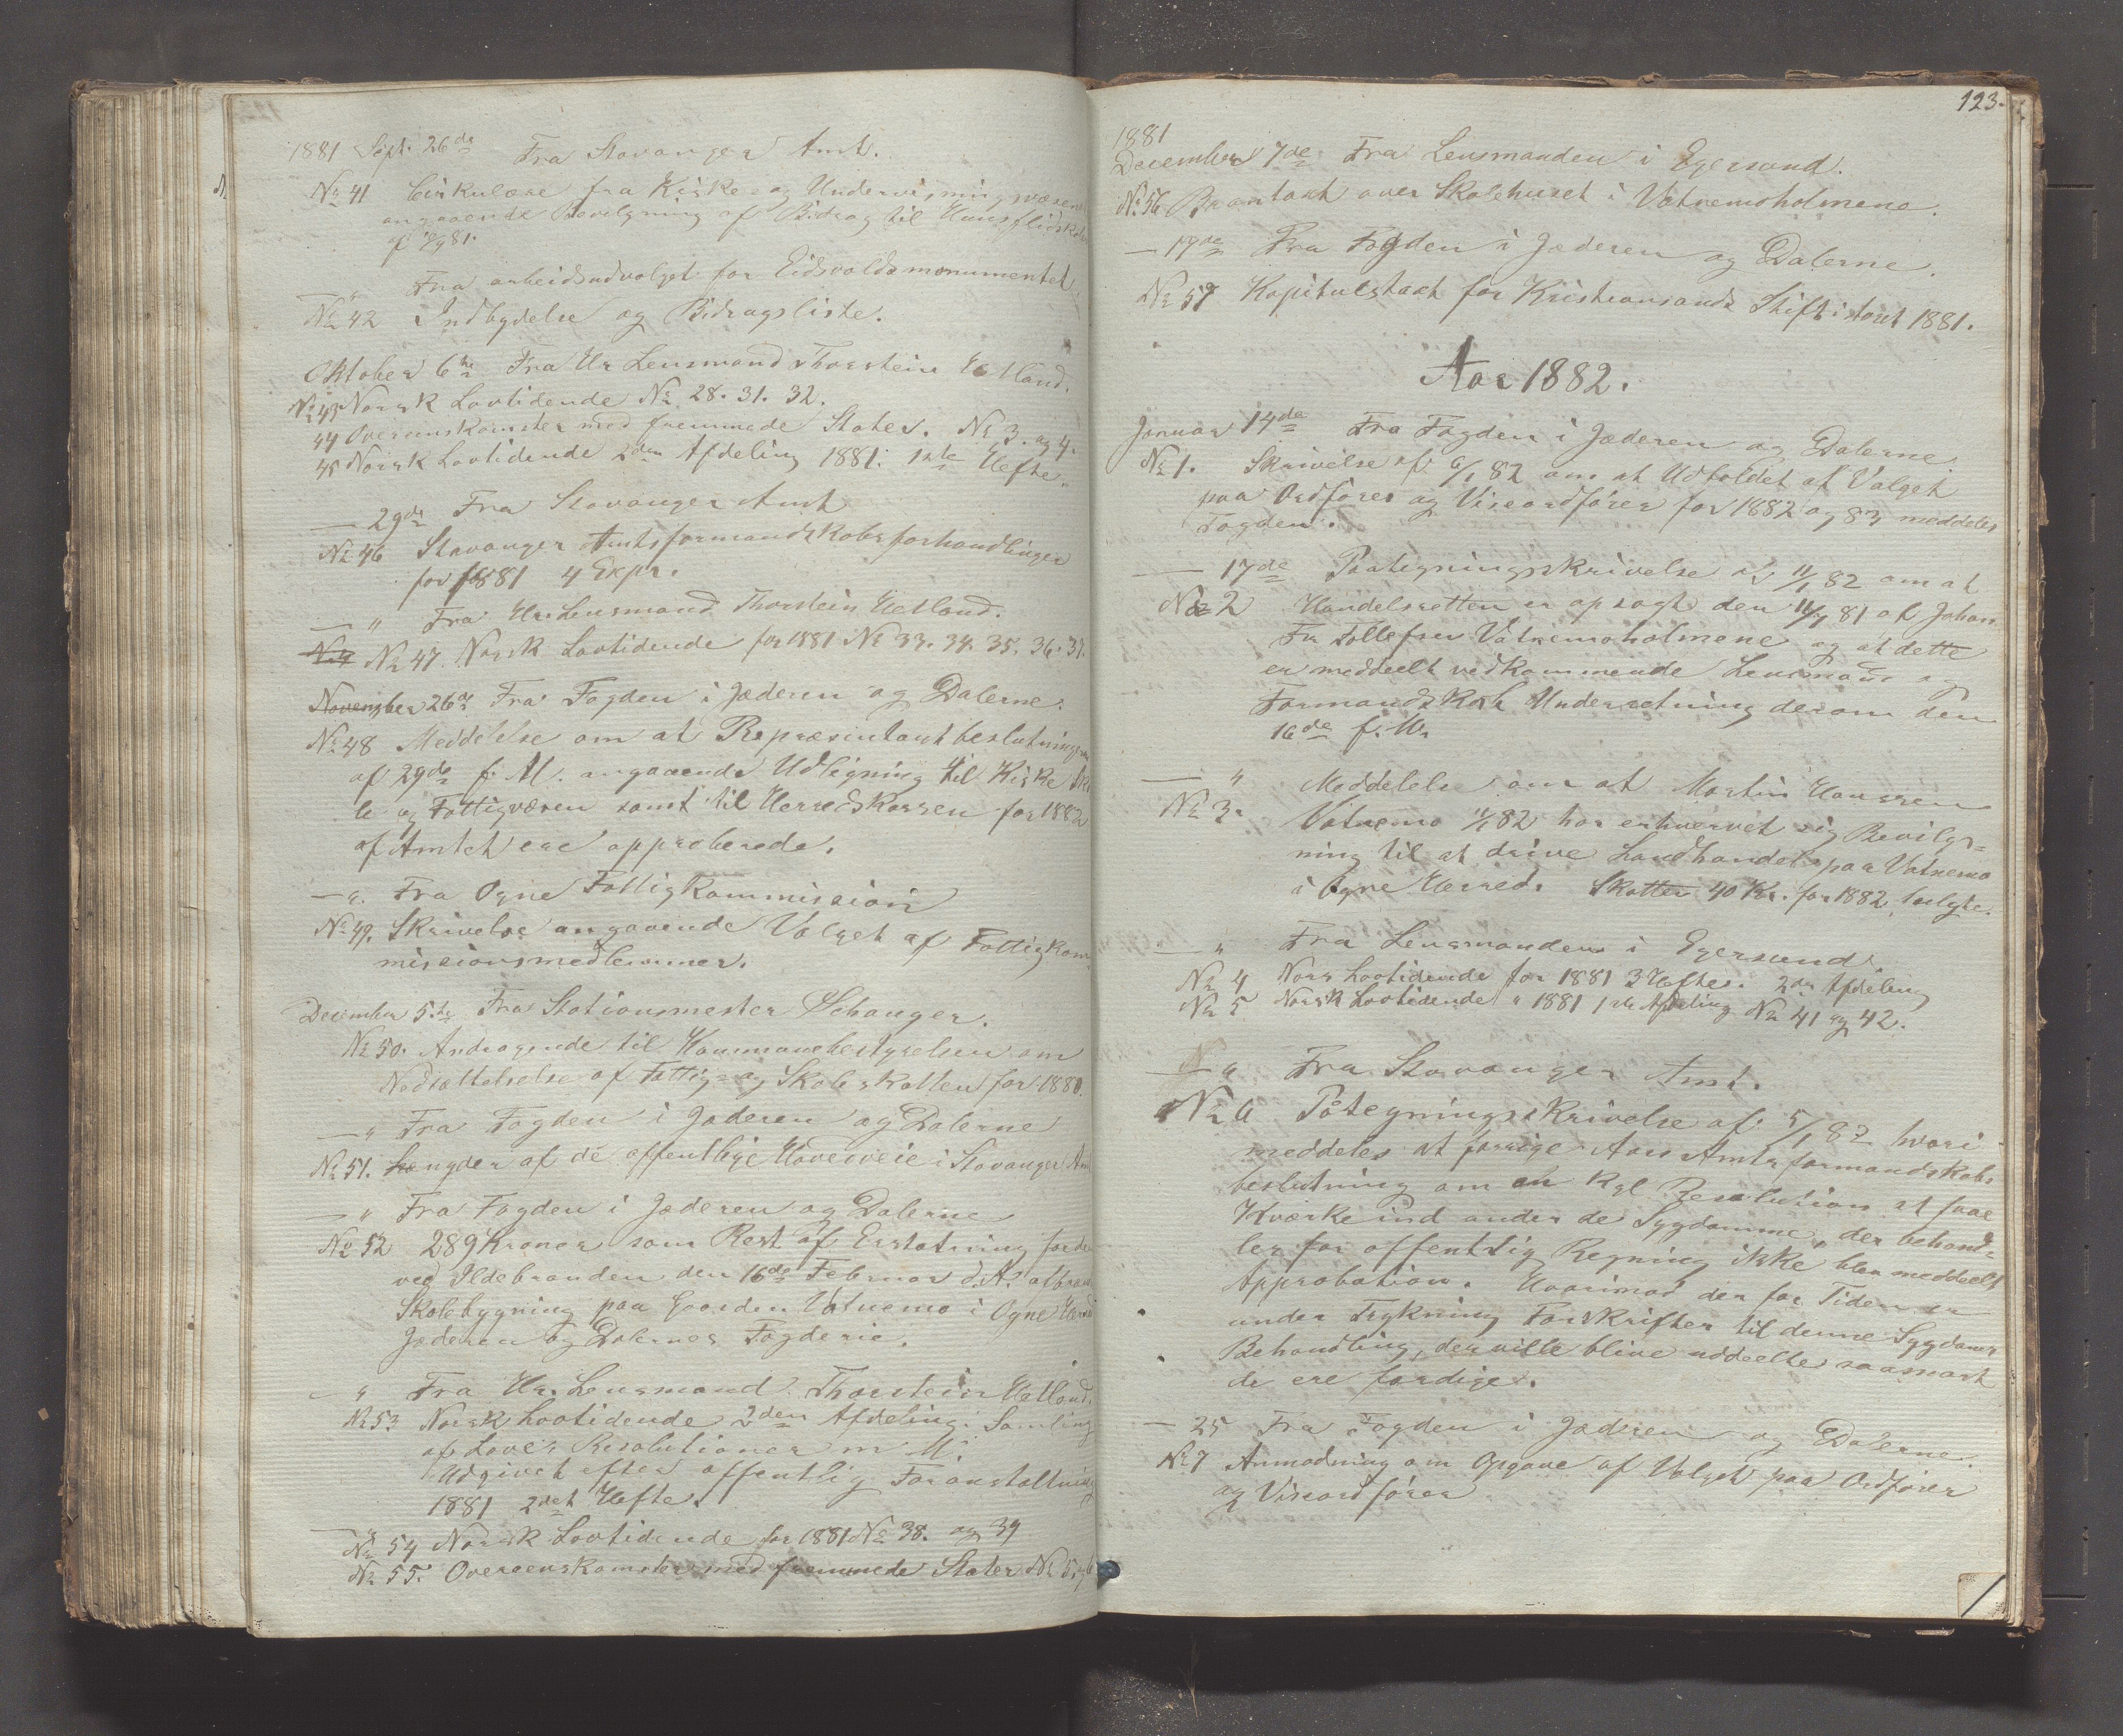 1881 Sept. 26de Fra Stavanger Amt.
No 41 Cirkulære fra Kirke og Undervisningsvæsen
angaaende Bevilgning af Bidrag til Huusflidsskoler
— " Fra arbeidsudvalget for Eidsvoldsmonumentet.
No 42 Indbydelse og Bidragsliste.
Oktober 6te Fra Hr Lensmand Thorstein Hetland.
No 43 Norsk Lovtidende No 28. 31. 32.
44 Overenskomster med fremmede Stater. No 3. og 4.
45 Norsk Lovtidende 2den Afdeling 1881. 1ste Hefte.
— 29de Fra Stavanger Amt
No 46 Stavanger Amtsformandskabsforhandlinger
for 1881 4 Expr.
— " Fra Hr. Lensmand Thorstein Hetland.
No 47. Norsk Lovtidende for 1881 No 33. 34. 35. 36. 37.
November 26de Fra Fogden i Jæderen og Dalerne.
No 48 Meddelelse om at Repræsentantbeslutningen
af 29de f. M. angaaende Udligning til Kirke Sko
le og Fattigvæsen samt til Herredskassen for 1882
af Amtet ere approberede.
— ". Fra Ogne Fattigkommission
No 49. Skrivelse angaaende Valget af Fattigkom-
missionsmedlemmer.
December 5.te Fra Stationsmester Schanger.
No 50. Andragende til Kommunebestyrelsen om
Nedsættelselse af Fattig- og Skoleskatten for 1880.
— " Fra Fogden i Jæderen og Dalerne
No 51. Længder af de offentlige Hovedveie i Stavanger Amt
— " Fra Fogden i Jæderen og Dalerne
No 52 289 Kroner som Rest af Erstatning for den
ved Ildebranden den 16de Februar d. A. afbrændte
Skolebygning paa Gaarden Vatnemo i Ogne Herred
Jæderen og Dalernes Fogderie.
— " Fra Hr. Lensmand Thorstein Hetland.
No 53 Norsk Lovtidende 2den Afdeling. Samling
af Love, Resolutioner m. M.
Udgivet efter offentlig Foranstaltning
1881 2det Hefte.
No 54 Norsk Lovtidende for 1881 No 38. og 39
No 55. Overenskomster med fremmede Stater No 5. og 6
123.
1881
December 7de Fra Lensmanden i Egersund.
No 56 Branntaxt over Skolehuset i Vatnemoholmene.
— 17de Fra Fogden i Jæderen og Dalerne.
No 57 Kapitulstaxt for Kristiansands Stift i Aaret 1881.
Aar 1882.
Januar 14de Fra Fogden i Jæderen og Dalerne.
No 1. Skrivelse af 6/1 82 om at Udfaldet af Valget
paa Ordfører og Viseordfører for 1882 og 83 meddeles
Fogden.
— 17de Paategningsskrivelse af 11/1 82 om at
No 2 Handelsretten er opsagt den 81 af Johan
Fr Tollefsen Vatnemoholmene og at dette
er meddeelt vedkommende Lensmand og
Formandskab Underretning derom den
16de f. M.
— " Meddelelse om at Martin Hanssen
No 3. Vatnemo 11/1 82 har erhvervet sig Bevilg-
ning til at drive Landhandel paa Vatnemo
i Ogne Herred. Skatten 40 Kr. for 1882
— " Fra Lensmanden i Egersund.
No 4 Norsk Lovtidende for 1881 3 Hefte. 2den Afdeling
No 5 Norsk Lovtidende " 1881 1ste Afdeling No 41 og 42.
— " Fra Stavanger Amt.
No 6 Påtegningsskrivelse af 5/1 82 hvori
meddeles at forrige Aars Amtsformandskabs
beslutning om en Kgl. Resolution at faae
Kværke ind under de Sygdomme, der behand-
les for offentlig Regning ikke blev meddeelt
Approbation. Hvorimod der for Tiden er
under Trykning Forskrifter til denne Sygdoms
Behandling, der ville blive uddeelte saasnart
de ere færdige.
— 25 Fra Fogden i Jæderen og Dalerne.
No 7 Anmodning om Opgave af Valget paa Ordfører
og Viseordfører